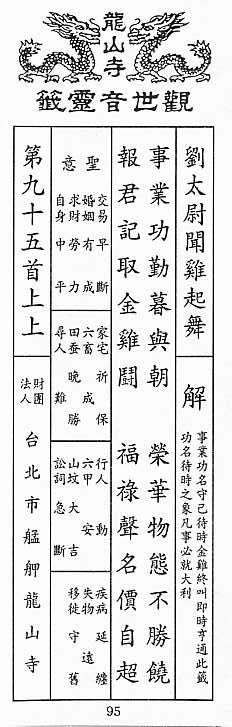 龍山寺
觀世音靈籤
劉太尉聞雞起舞
解
事業功名守己待時金雞終叫即時亨通此籤
功名待時之象凡事必就大利
事業功勤暮與朝 榮華物態不勝饒
報君記取金雞鬪 福祿聲名價自超
聖意
交易早斷
婚姻有成
求財勞力
自身中平
家宅祈保
六畜成
田蚕晚勝
尋人難
行人動
六甲安
山墳大吉
訟詞急斷
疾病延纏
失物遠
移徙守舊
第九十五首上上
財團
法人
台北市艋舺龍山寺
95